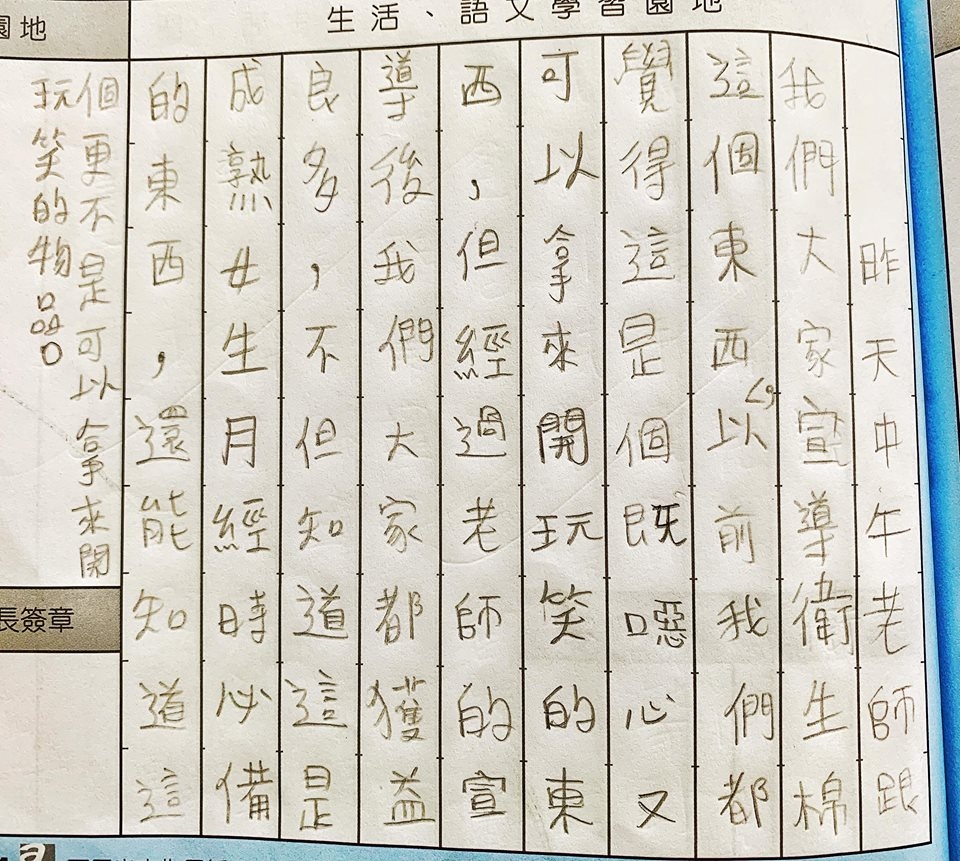 生活、語文學習園地
昨天中午老師跟
我們大家宣導衛生棉
這個東西，以前我們都
覺得這是個既噁心又
可以拿來開玩笑的東
西，但經過老師的宣
導後我們大家都獲益
良多，不但知道這是
成熟女生月經時必備
的東西，還能知道這
園地
個更不是可以拿來開
玩笑的物品。
長簽章